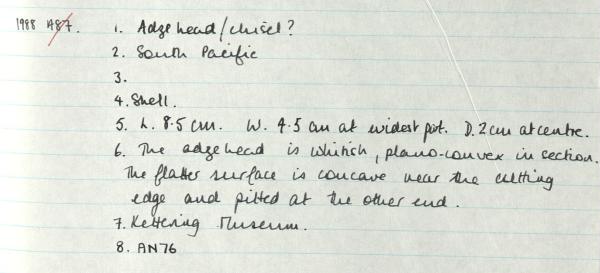 1988 A87. 1. Adze head/chisel?
2. South Pacific
3.
4. Shell.
5. L. 8.5 cm. W. 4.5 cm at widest pt. D. 2 cm at centre.
6. The adzehead is whitish, plano-convex in section.
The flatter surface is concave near the cutting
edge and pitted at the other end.
7. Kettering Museum.
8. AN76